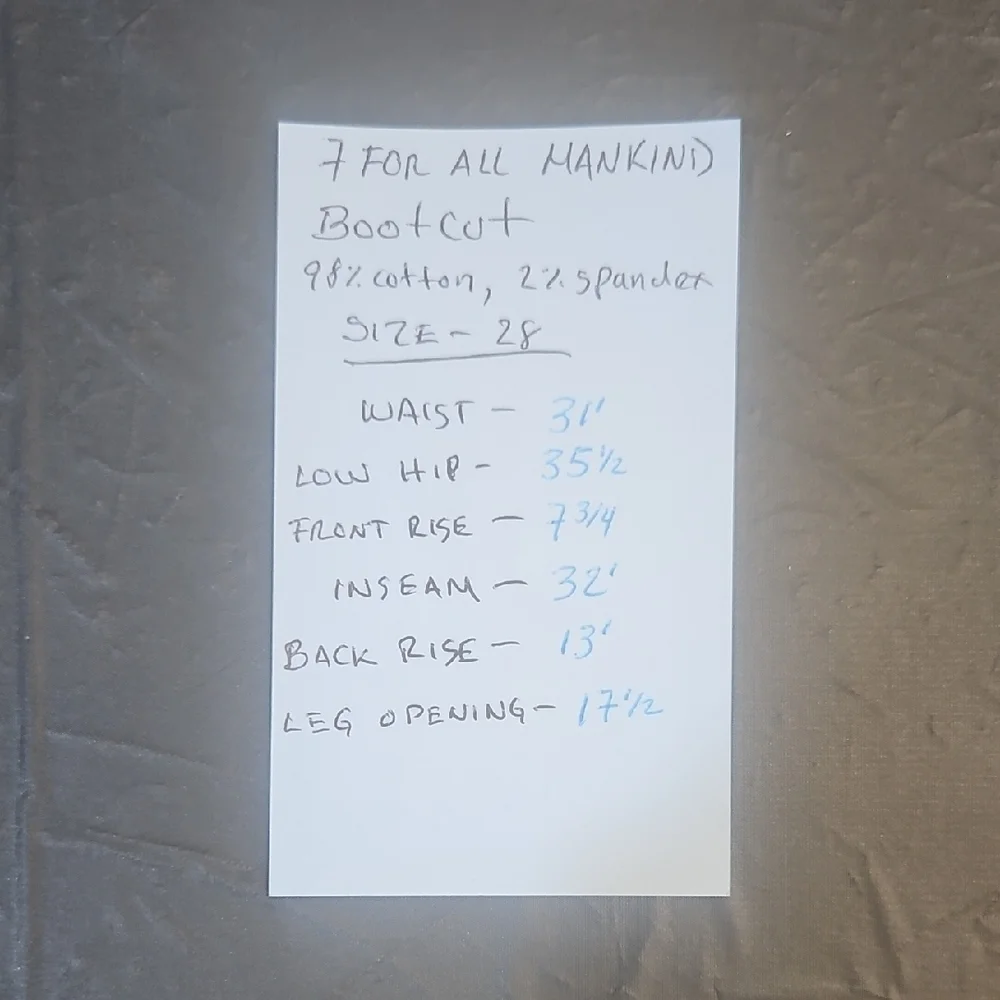 7 FOR ALL MANKIND
Bootcut
98% cotton, 2% spandex
SIZE - 28
WAIST - 31'
LOW HIP - 35 1/2
FRONT RISE - 7 3/4
INSEAM - 32'
BACK RISE - 13'
LEG OPENING - 17 1/2